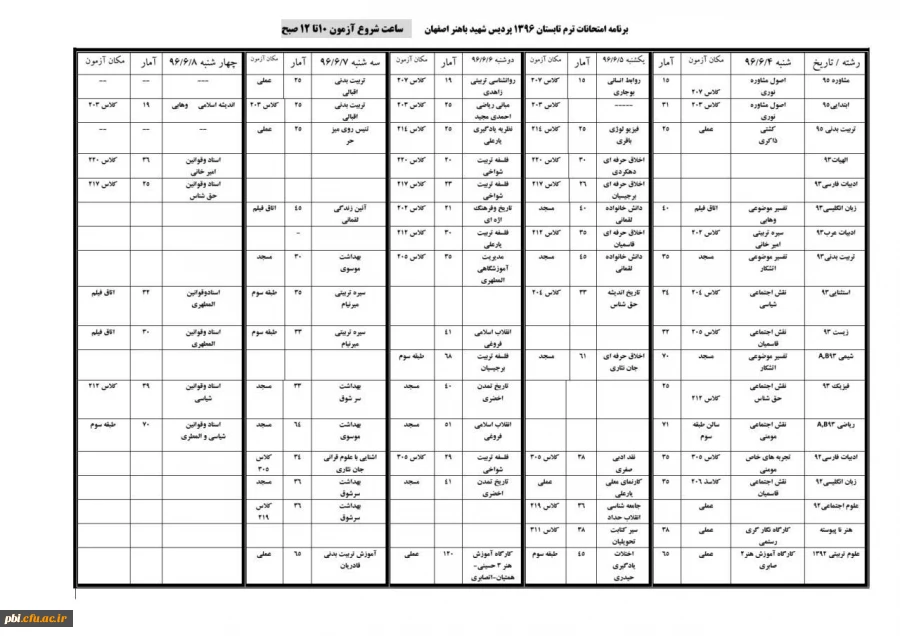 برنامه امتحانات ترم تابستان ۱۳۹۶ پردیس شهید باهنر اصفهان ساعت شروع آزمون ۱۰تا ۱۲ صبح
رشته / تاریخ شنبه ۹۶/۶/۴ مکان آزمون آمار یکشنبه ۹۶/۶/۵ آمار مکان آزمون دوشنبه ۹۶/۶/۶ آمار مکان آزمون سه شنبه ۹۶/۶/۷ آمار مکان آزمون چهار شنبه ۹۶/۶/۸ آمار مکان آزمون
مشاوره ۹۵ اصول مشاوره نوری کلاس ۲۰۷ ۱۵ روابط انسانی بوجاری ۱۵ کلاس ۲۰۷ روانشناسی تربیتی زاهدی ۱۹ کلاس ۲۰۷ تربیت بدنی اقبالی ۲۵ عملی --- -- --
ابتدایی۹۵ اصول مشاوره نوری کلاس ۲۰۳ ۳۱ ----- کلاس ۲۰۳ مبانی ریاضی احمدی مجید ۲۵ کلاس ۲۰۳ تربیت بدنی اقبالی ۲۵ کلاس ۲۰۳ اندیشه اسلامی وهابی ۱۹ کلاس ۲۰۳
تربیت بدنی ۹۵ کشتی ذاکری عملی ۲۵ فیزیو لوژی باقری ۲۵ کلاس ۲۱۴ نظریه یادگیری یارعلی ۲۵ کلاس ۲۱۴ تنیس روی میز حر ۲۵ عملی -- -- --
الهیات۹۳ اخلاق حرفه ای دهکردی ۳۰ کلاس ۲۲۰ فلسفه تربیت شواخی ۲۰ کلاس ۲۲۰ اسناد وقوانین امیر خانی ۳۶ کلاس ۲۲۰
ادبیات فارسی۹۳ اخلاق حرفه ای برجیسیان ۲۶ کلاس ۲۱۷ فلسفه تربیت شواخی ۲۳ کلاس ۲۱۷ اسناد وقوانین حق شناس ۲۵ کلاس ۲۱۷
زبان انگلیسی۹۳ تفسیر موضوعی وهابی اتاق فیلم ۴۰ دانش خانواده لقمانی ۴۰ مسجد تاریخ وفرهنگ اژه ای ۲۱ کلاس ۲۰۲ آئین زندگی لقمانی ۴۵ اتاق فیلم
ادبیات عرب۹۳ سیره تربیتی امیر خانی کلاس ۲۰۲ اخلاق حرفه ای قاسمیان ۳۵ کلاس ۲۱۲ فلسفه تربیت یارعلی ۳۰ کلاس ۲۱۲ -
تربیت بدنی۹۳ تفسیر موضوعی اتشکار مسجد ۳۵ دانش خانواده لقمانی ۴۵ مسجد مدیریت آموزشگاهی المطهری ۳۵ کلاس ۲۰۵ بهداشت موسوی ۳۰ مسجد
استثنایی۹۳ نقش اجتماعی شیاسی کلاس ۲۰۴ ۳۴ تاریخ اندیشه حق شناس ۳۳ کلاس ۲۰۴ سیره تربیتی میرنیام ۳۵ طبقه سوم اسنادوقوانین المطهری ۳۲ اتاق فیلم
زیست ۹۳ نقش اجتماعی قاسمیان کلاس ۲۰۵ ۳۲ انقلاب اسلامی فروغی ۴۱ سیره تربیتی میرنیام ۳۳ طبقه سوم اسناد وقوانین المطهری ۳۰ اتاق فیلم
شیمی A,B۹۳ تفسیر موضوعی اتشکار مسجد ۷۰ اخلاق حرفه ای جان نثاری ۶۱ مسجد فلسفه تربیت برجیسیان ۶۸ طبقه سوم
فیزیک ۹۳ نقش اجتماعی حق شناس کلاس ۲۱۲ ۲۵ تاریخ تمدن اخضری ۴۰ مسجد بهداشت سر شوق ۳۳ مسجد اسناد وقوانین شیاسی ۳۹ کلاس ۲۱۲
ریاضی A,B۹۳ نقش اجتماعی مومنی سالن طبقه سوم ۷۱ انقلاب اسلامی فروغی ۵۱ مسجد بهداشت موسوی ۶۴ مسجد اسناد وقوانین شیاسی و المطری ۷۰ طبقه سوم
ادبیات فارسی۹۲ تجربه های خاص مومنی کلاس ۳۰۵ ۳۵ نقد ادبی صفری ۳۸ کلاس ۳۰۵ فلسفه تربیت شواخی ۲۹ کلاس ۳۰۵ اشنایی با علوم قرانی جان نثاری ۳۴ کلاس ۳۰۵
زبان انگلیسی۹۲ نقش اجتماعی قاسمیان کلاسد ۲۰۶ ۳۵ کارنمای معلی یارعلی عملی تاریخ تمدن اخضری ۴۱ مسجد بهداشت سرشوق ۳۶ مسجد
علوم اجتماعی۹۲ عملی جامعه شناسی انقلاب حداد ۳۶ کلاس ۲۱۹ بهداشت سرشوق ۳۶ کلاس ۲۱۹
هنر نا پیوسته کارگاه نگار گری رستمی عملی ۳۸ سیر کتابت تحویلیان ۳۸ کلاس ۳۱۱
علوم تربیتی ۱۳۹۲ کارگاه آموزش هنر۲ صابری عملی ۶۵ اختلات یادگیری حیدری ۴۵ طبقه سوم کارگاه آموزش هنر ۳ حسینی- همتیان-انصابری ۱۲۰ عملی آموزش تربیت بدنی قادریان ۶۵ عملی
pbi.cfu.ac.ir